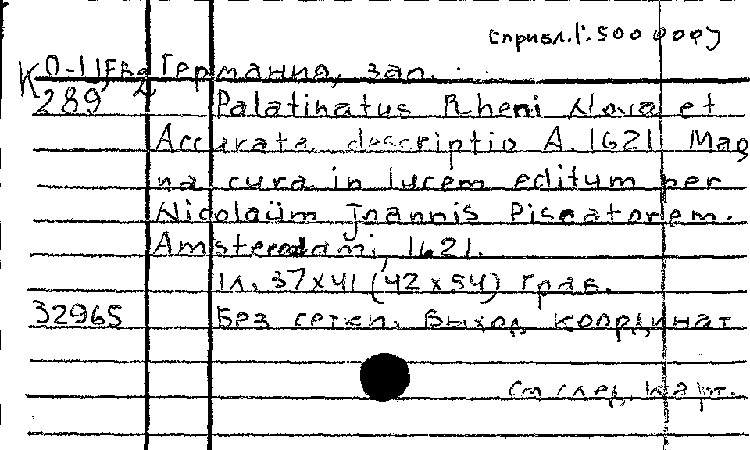 [прибл. 1:500 000]
К 0-1 Германия, зап.
289 Palatinatus Rheni Nova et
Accurata descriptio A. 1621 Mag
na cura in lucem editum per
Nicolaüm Joannis Piscatorem.
Amsterodami, 1621.
1л. 37x41 (42x54) грав.
32965 Без сетки. Выход. координат
См след. карт.